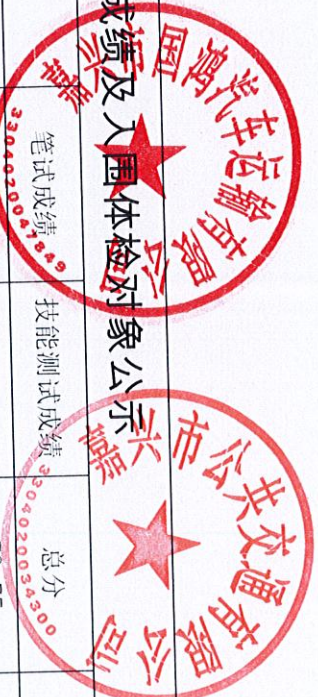 成绩及入围体检对象公示
笔试成绩
技能测试成绩
总分
嘉兴市国鸿汽车运输有限公司
3304020047849
嘉兴市公共交通有限公司
3304020034300